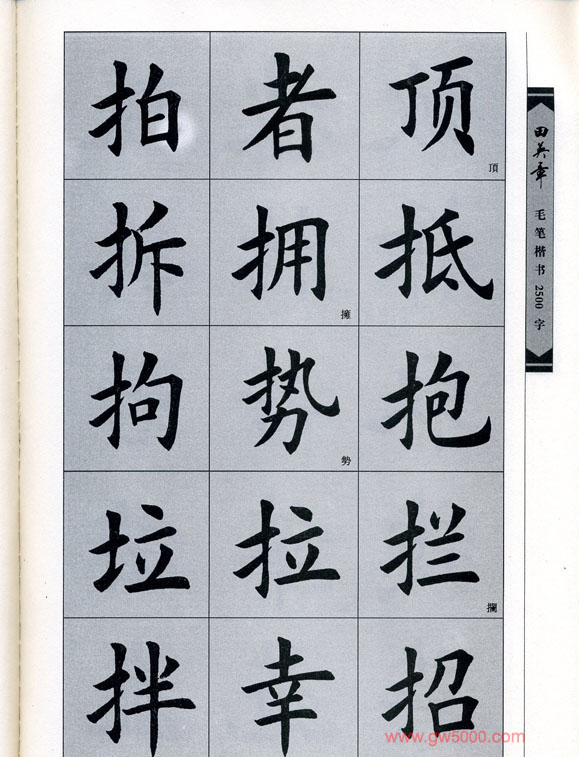 拍 者 顶
頂
拆 拥 抵
擁
拘 势 抱
勢
垃 拉 拦
攔
拌 幸 招
田英章 毛笔楷书2500字
www.gw5000.com